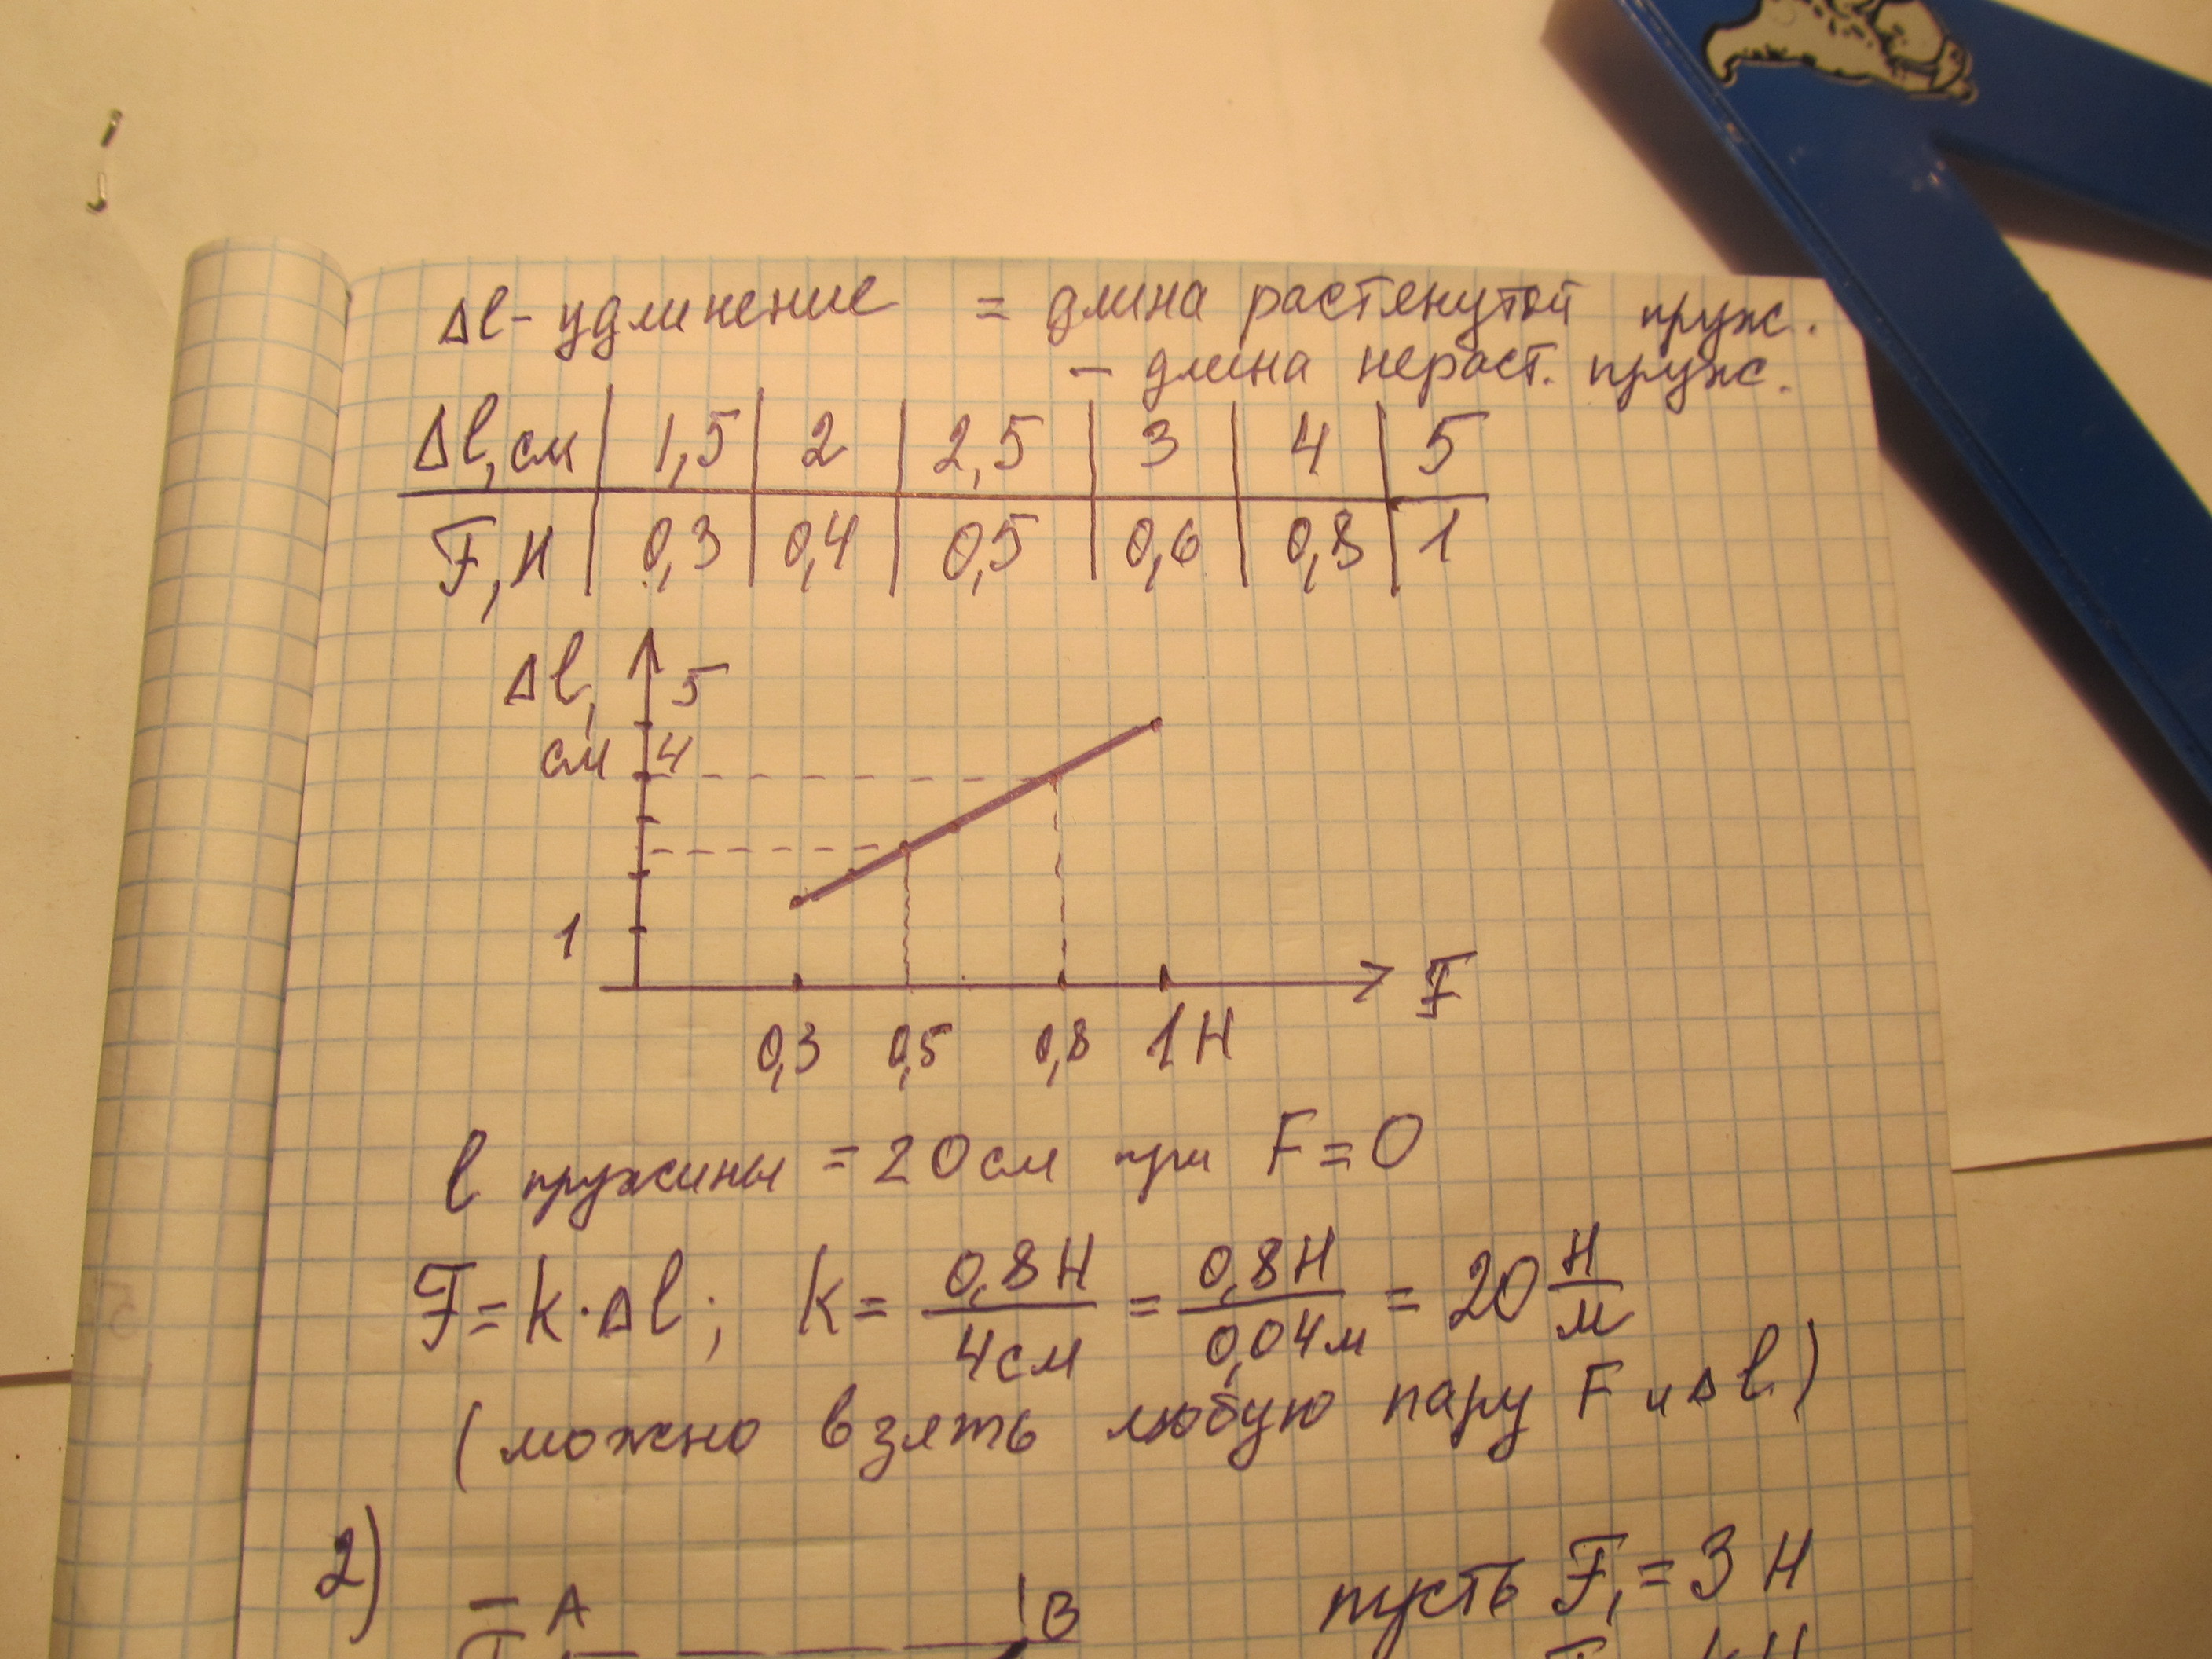 Δl - удлинение = длина растянутой пруж.
– длина нераст. пруж.
Δl, см | 1,5 | 2 | 2,5 | 3 | 4 | 5
F, Н | 0,3 | 0,4 | 0,5 | 0,6 | 0,8 | 1
Δl, 5
см 4
1
F
0,3 0,5 0,8 1Н
l пружины = 20 см при F = 0
F = k · Δl ; k = 0,8 Н / 4 см = 0,8 Н / 0,04 м = 20 Н/м
(можно взять любую пару F и Δl)
2)
А В пусть F₁ = 3 Н